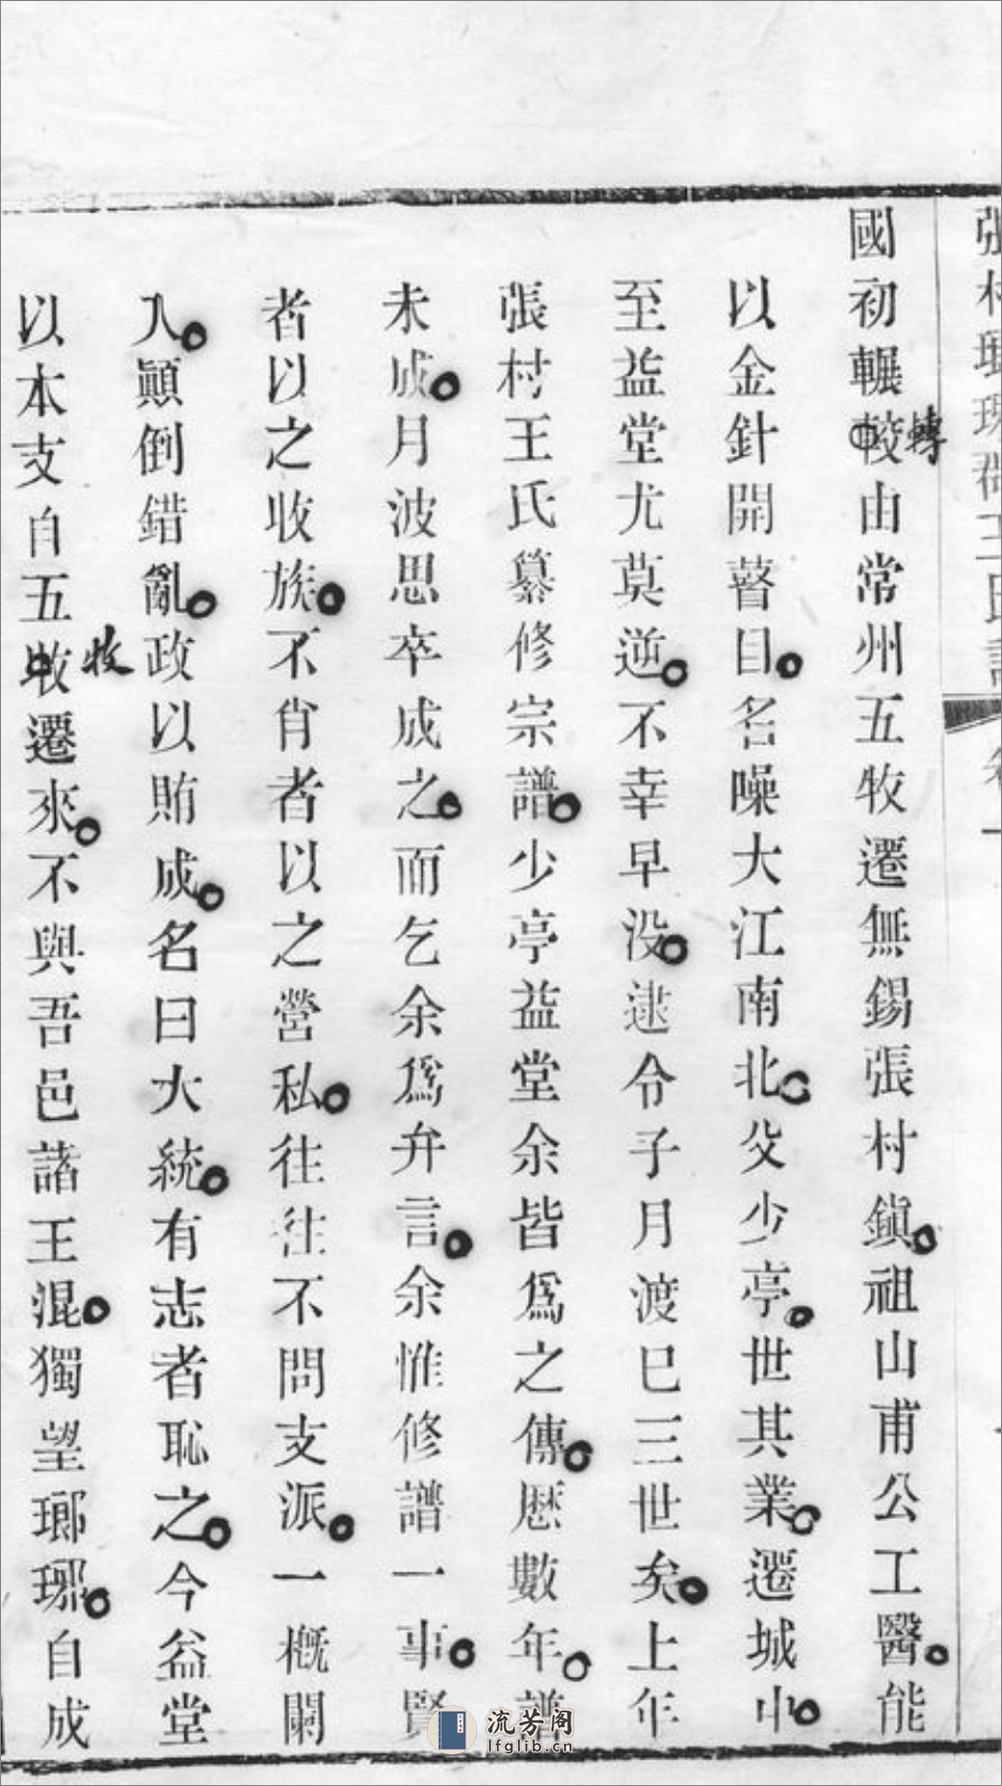 張村瑯琊王氏
國初輾較由常州五牧遷無錫張村鎭祖山甫公工醫能
轉
以金針開瞽目名噪大江南北父少亭世其業遷城中
至益堂尤莫逆不幸早没逮令子月渡已三世矣上年
張村王氏纂修宗譜少亭益堂余皆爲之傳歷數年譜
未成月波思卒成之而乞余爲弁言余惟修譜一事賢
者以之收族不肖者以之營私往往不問支派一概闌
入顚倒錯亂政以賄成名曰大統有志者恥之今益堂
牧
以本支自五收遷來不與吾邑諸王混獨望瑯琊自成
流芳阁
lfglib.cn